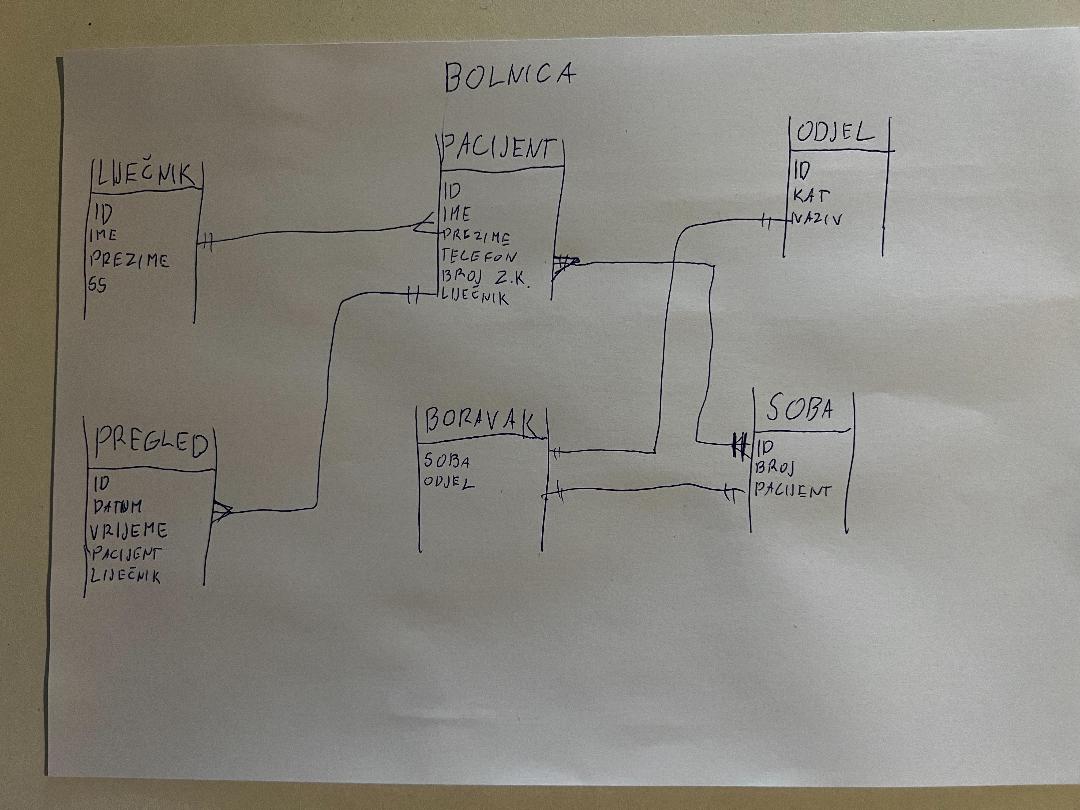 BOLNICA
LIJEČNIK
ID
IME
PREZIME
SS
PACIJENT
ID
IME
PREZIME
TELEFON
BROJ Z.K.
LIJEČNIK
ODJEL
ID
KAT
NAZIV
PREGLED
ID
DATUM
VRIJEME
PACIJENT
LIJEČNIK
BORAVAK
SOBA
ODJEL
SOBA
ID
BROJ
PACIJENT